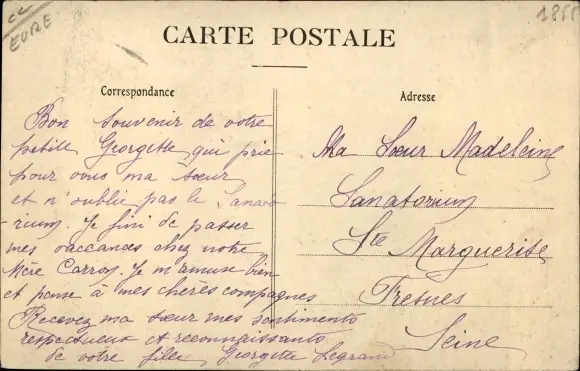 EURE
CARTE POSTALE
Correspondance
Bon souvenir de votre
petite Georgette qui prie
pour vous ma sœur
et n'oublie pas le Sanato
-rium. Je fini de passer
mes vaccances chez notre
Mère Carron. Je m'amuse bien
et pense à mes chères compagnes
Recevez ma sœur mes sentiments
respectueux et reconnaissants
de votre fille Georgette Legrand
Adresse
Ma Sœur Madeleine
Sanatorium
Ste Marguerite
Fresnes
Seine